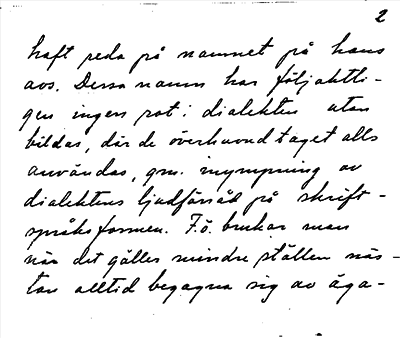 2
haft reda på namnet på hans
avs. Dessa namn har följaktli-
gen ingen rot i dialekten utan
bildas, där de överhuvud taget alls
användas, gm. inympning av
dialektens ljudförråd på skrift-
språksformen. F.ö. brukar man
när det gäller mindre ställen näs-
tan alltid begagna sig av äga-